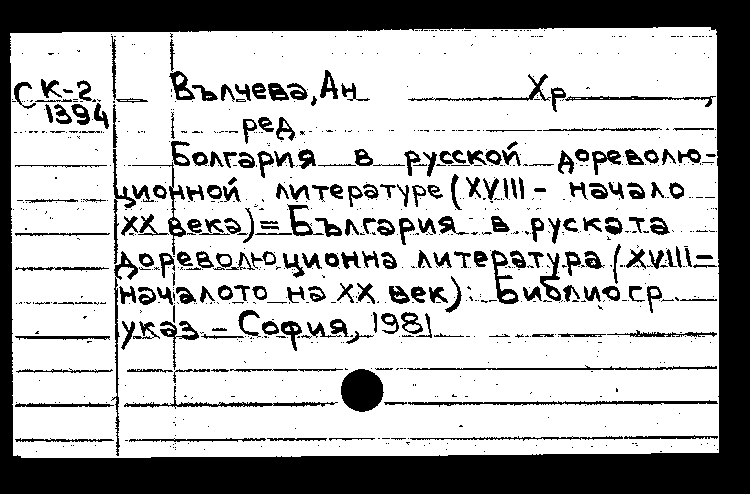 СК-2 Вълчева, Ан Хр ,
1394 ред.
Болгария в русской дореволю-
ционной литературе (XVIII - начало
XX века) = България в руската
дореволюционна литература (XVIII -
началото на XX век): Библиогр.
указ - София, 1981